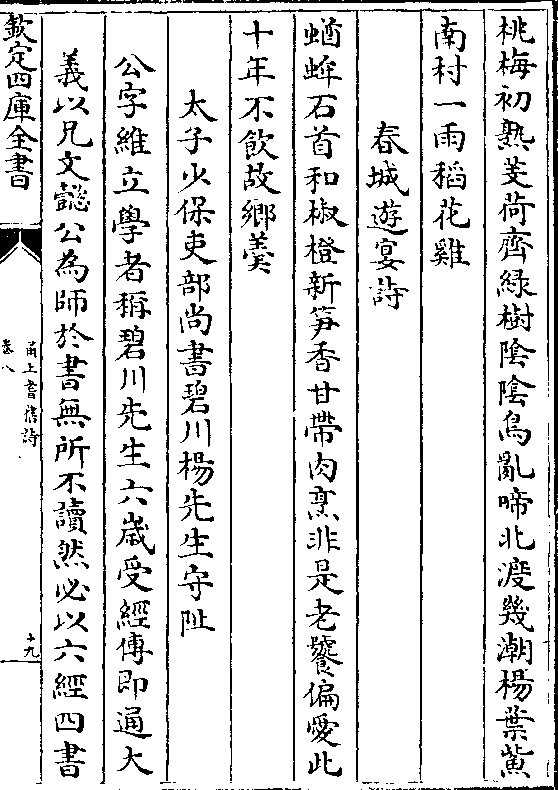 桃梅初熟芰荷齊綠樹陰陰鳥亂啼北渡幾潮楊葉鮆
南村一雨稻花雞
春城遊宴詩
蝤蛑石首和椒橙新筍香甘帶肉烹非是老饕偏愛此
十年不飲故鄉羹
太子少保吏部尚書碧川楊先生守阯
公字維立學者稱碧川先生六歲受經傳即通大
義以兄文懿公為師於書無所不讀然必以六經四書
欽定四庫全書
甬上耆舊詩
卷八
十九